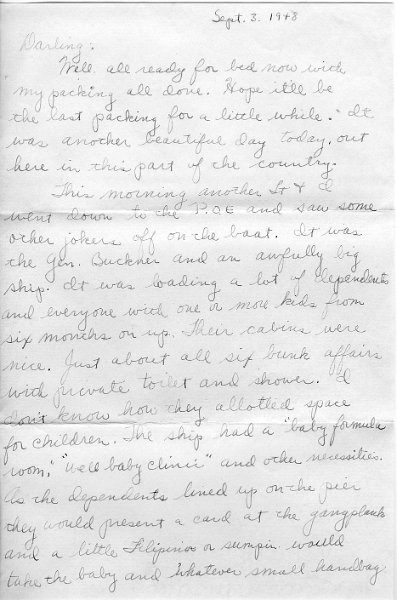 Sept. 3. 1948
Darling:
Well all ready for bed now with
my packing all done. Hope itll be
the last packing for a little while. It
was another beautiful day today, out
here in this part of the country.
This morning another Lt & I
went down to the P.O.E and saw some
other jokers off on the boat. It was
the Gen. Buckner and an awfully big
ship. It was loading a lot of dependents
and everyone with one or more kids from
six months on up. Their cabins were
nice. Just about all six bunk affairs
with private toilet and shower. I
don't know how they allotted space
for children. The ship had a "baby formula
room," "well baby clinic" and other necessities.
As the dependents lined up on the pier
they would present a card at the gangplank
and a little Filipino or sumpin would
take the baby and whatever small handbag